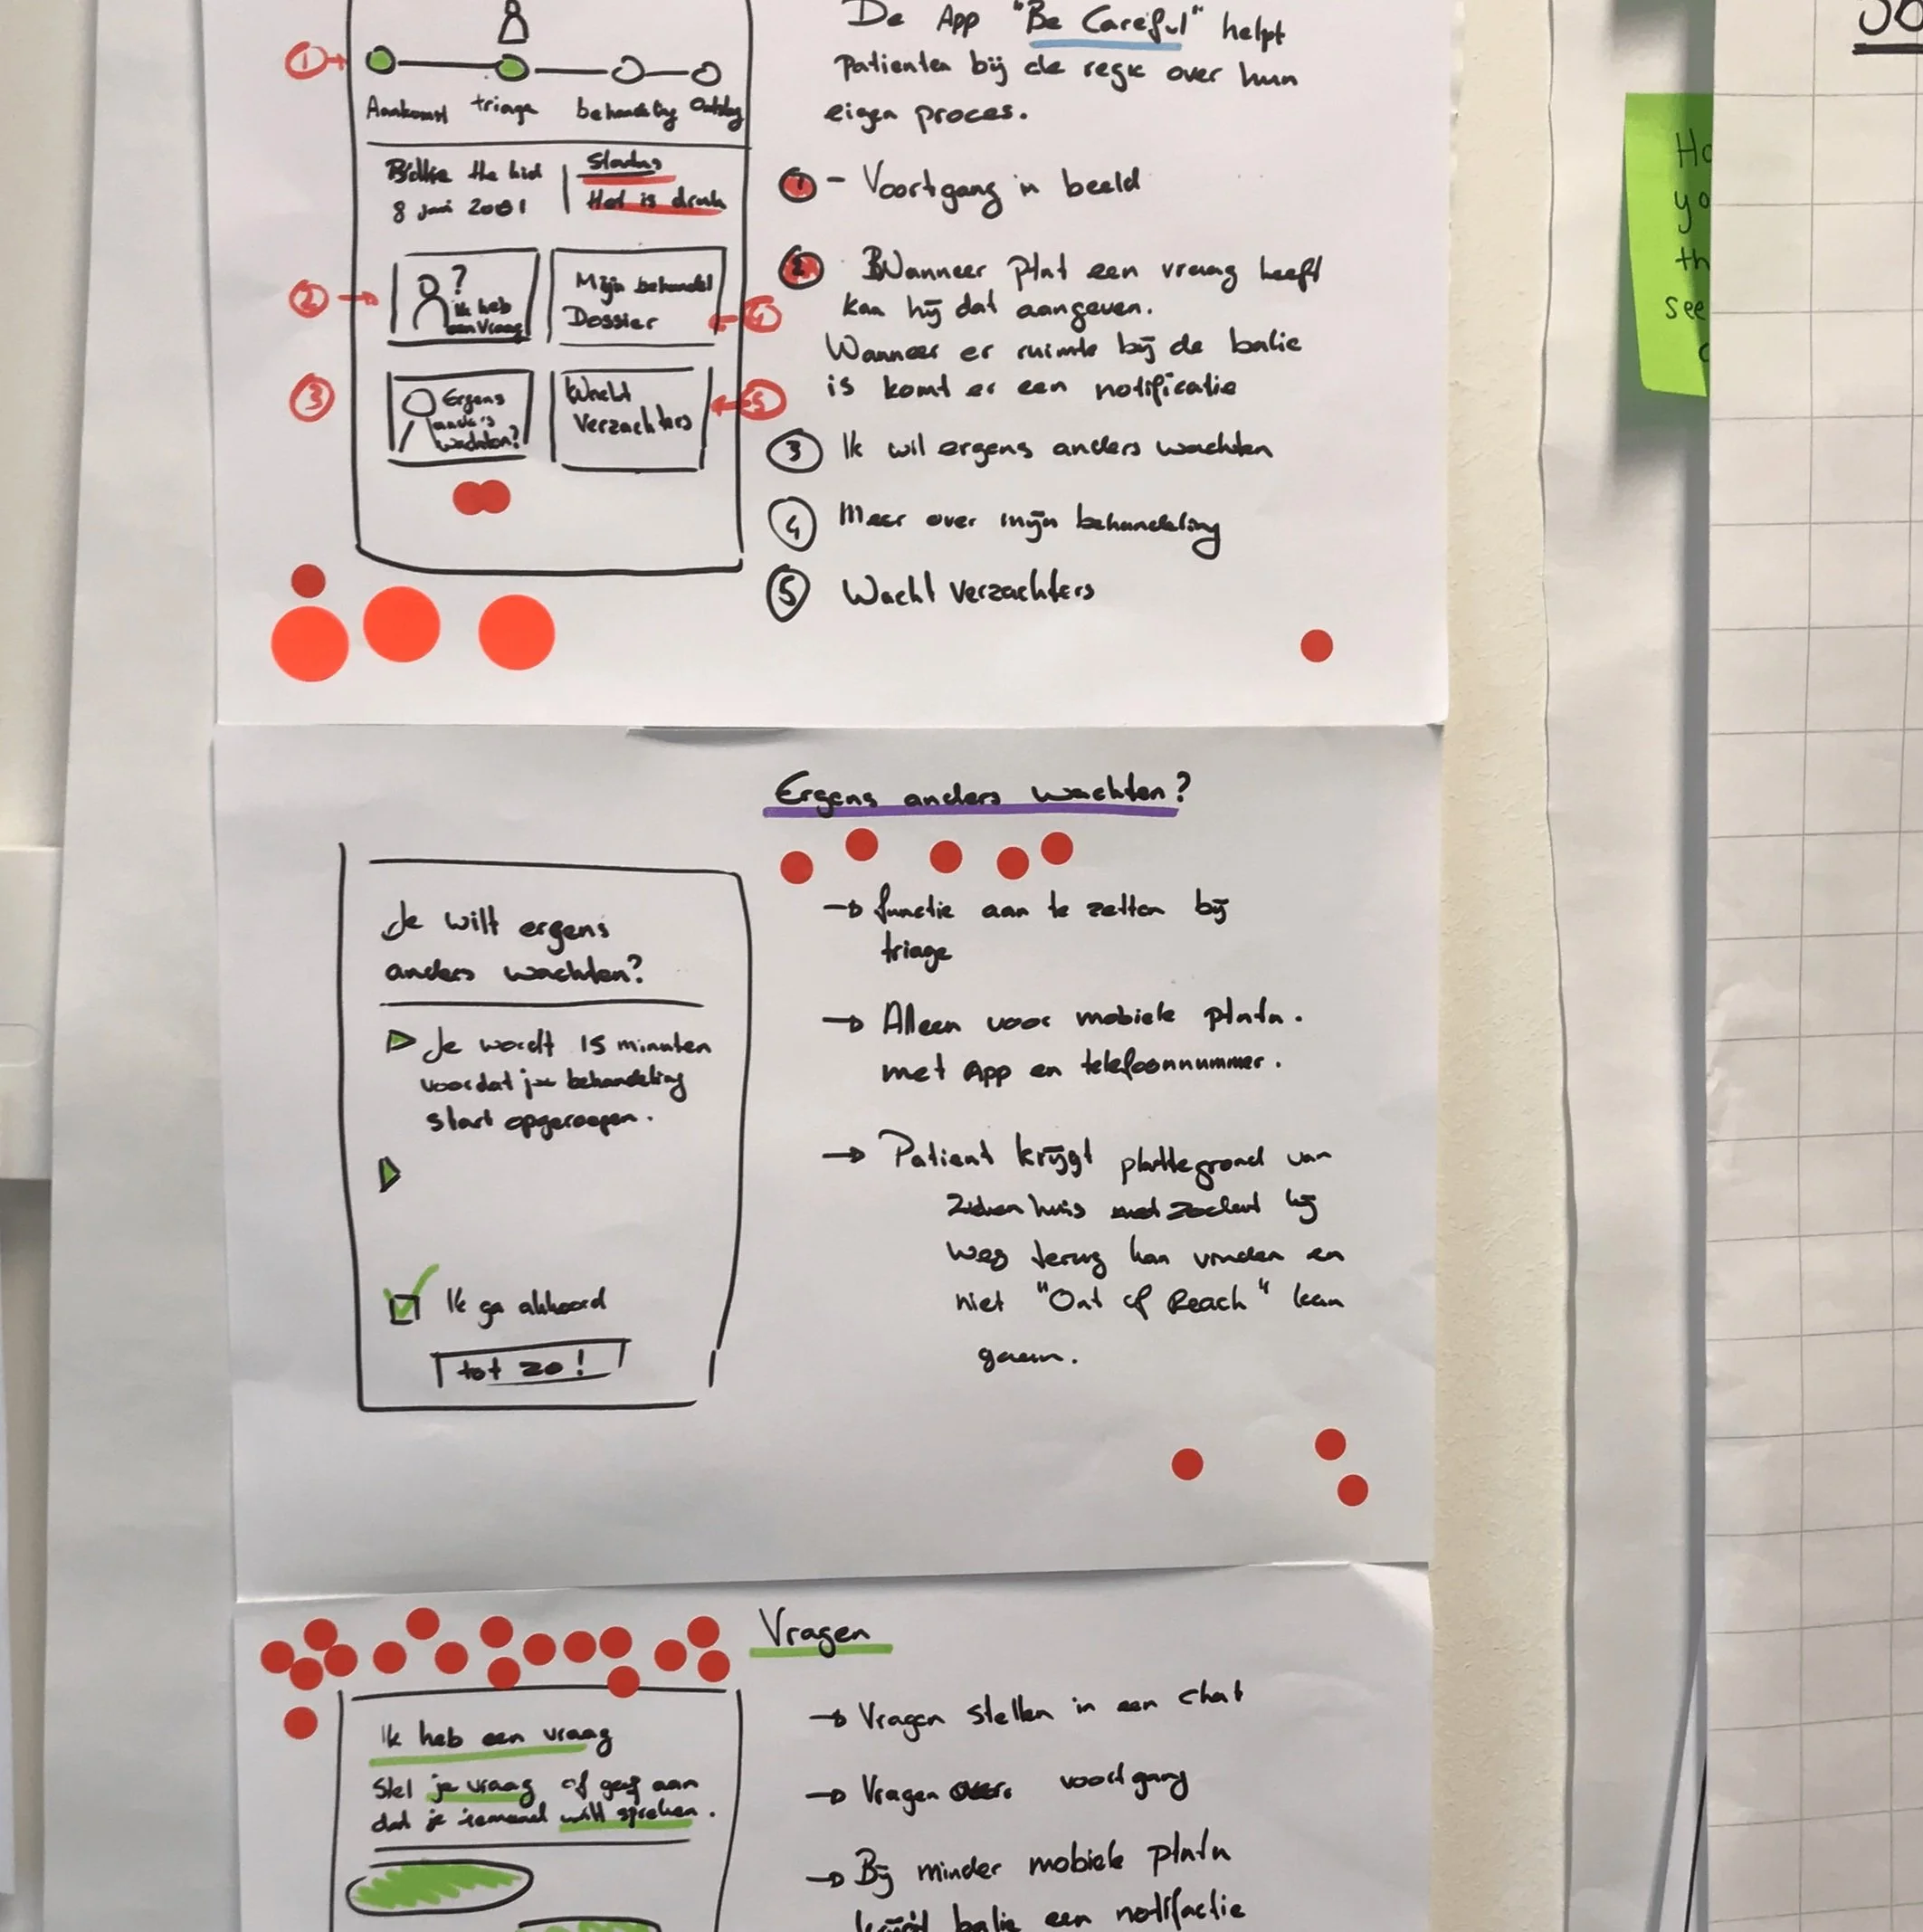 De App "Be Careful" helpt
patienten bij de regie over hun
eigen proces.
①
Aankomst triage behandeling Ontslag
the kid
Status
8 juni 2001
Het is druk
① - Voortgang in beeld
② Wanneer ptnt een vraag heeft
kan hij dat aangeven.
Wanneer er ruimte bij de balie
is komt er een notificatie
②
?
ik heb
een vraag
Mijn behandel
Dossier
④
③
Ergens
anders
wachten?
Wacht
Verzachters
⑤
③ Ik wil ergens anders wachten
④ Meer over mijn behandeling
⑤ Wacht verzachters
Ergens anders wachten?
Je wilt ergens
anders wachten?
Je wordt 15 minuten
voordat je behandeling
start opgeroepen.
Ik ga akkoord
tot zo!
→ functie aan te zetten bij
triage
→ Alleen voor mobiele ptntn.
met App en telefoonnummer.
→ Patient krijgt plattegrond van
ziekenhuis zodat hij
weg terug kan vinden en
niet "Out of Reach" kan
gaan.
Vragen
Ik heb een vraag
Stel je vraag of geef aan
dat je iemand wilt spreken.
→ Vragen stellen in een chat
→ Vragen over voortgang
→ Bij minder mobiele ptntn
krijgt balie een notifactie
Ho
yo
th
see